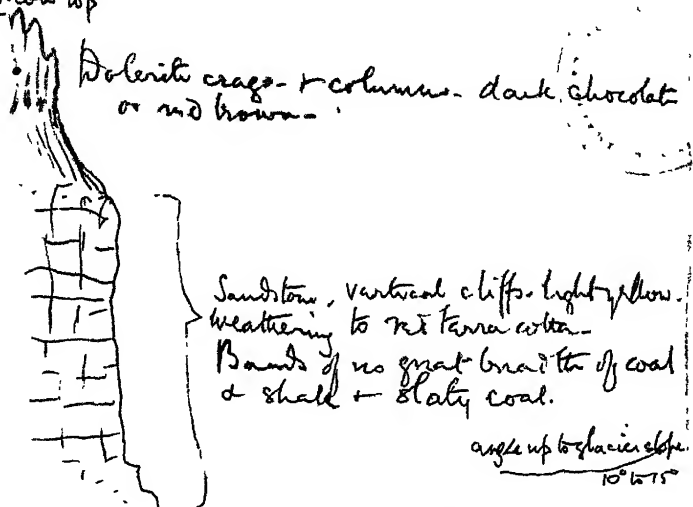 Snow top
Dolerite crags - & columns - dark chocolate
or red brown -
Sandstone, vertical cliffs. light yellow.
weathering to red terra cotta -
Bands of no great breadth of coal
& shale & slaty coal.
angle up to glacier slope.
10° to 15°